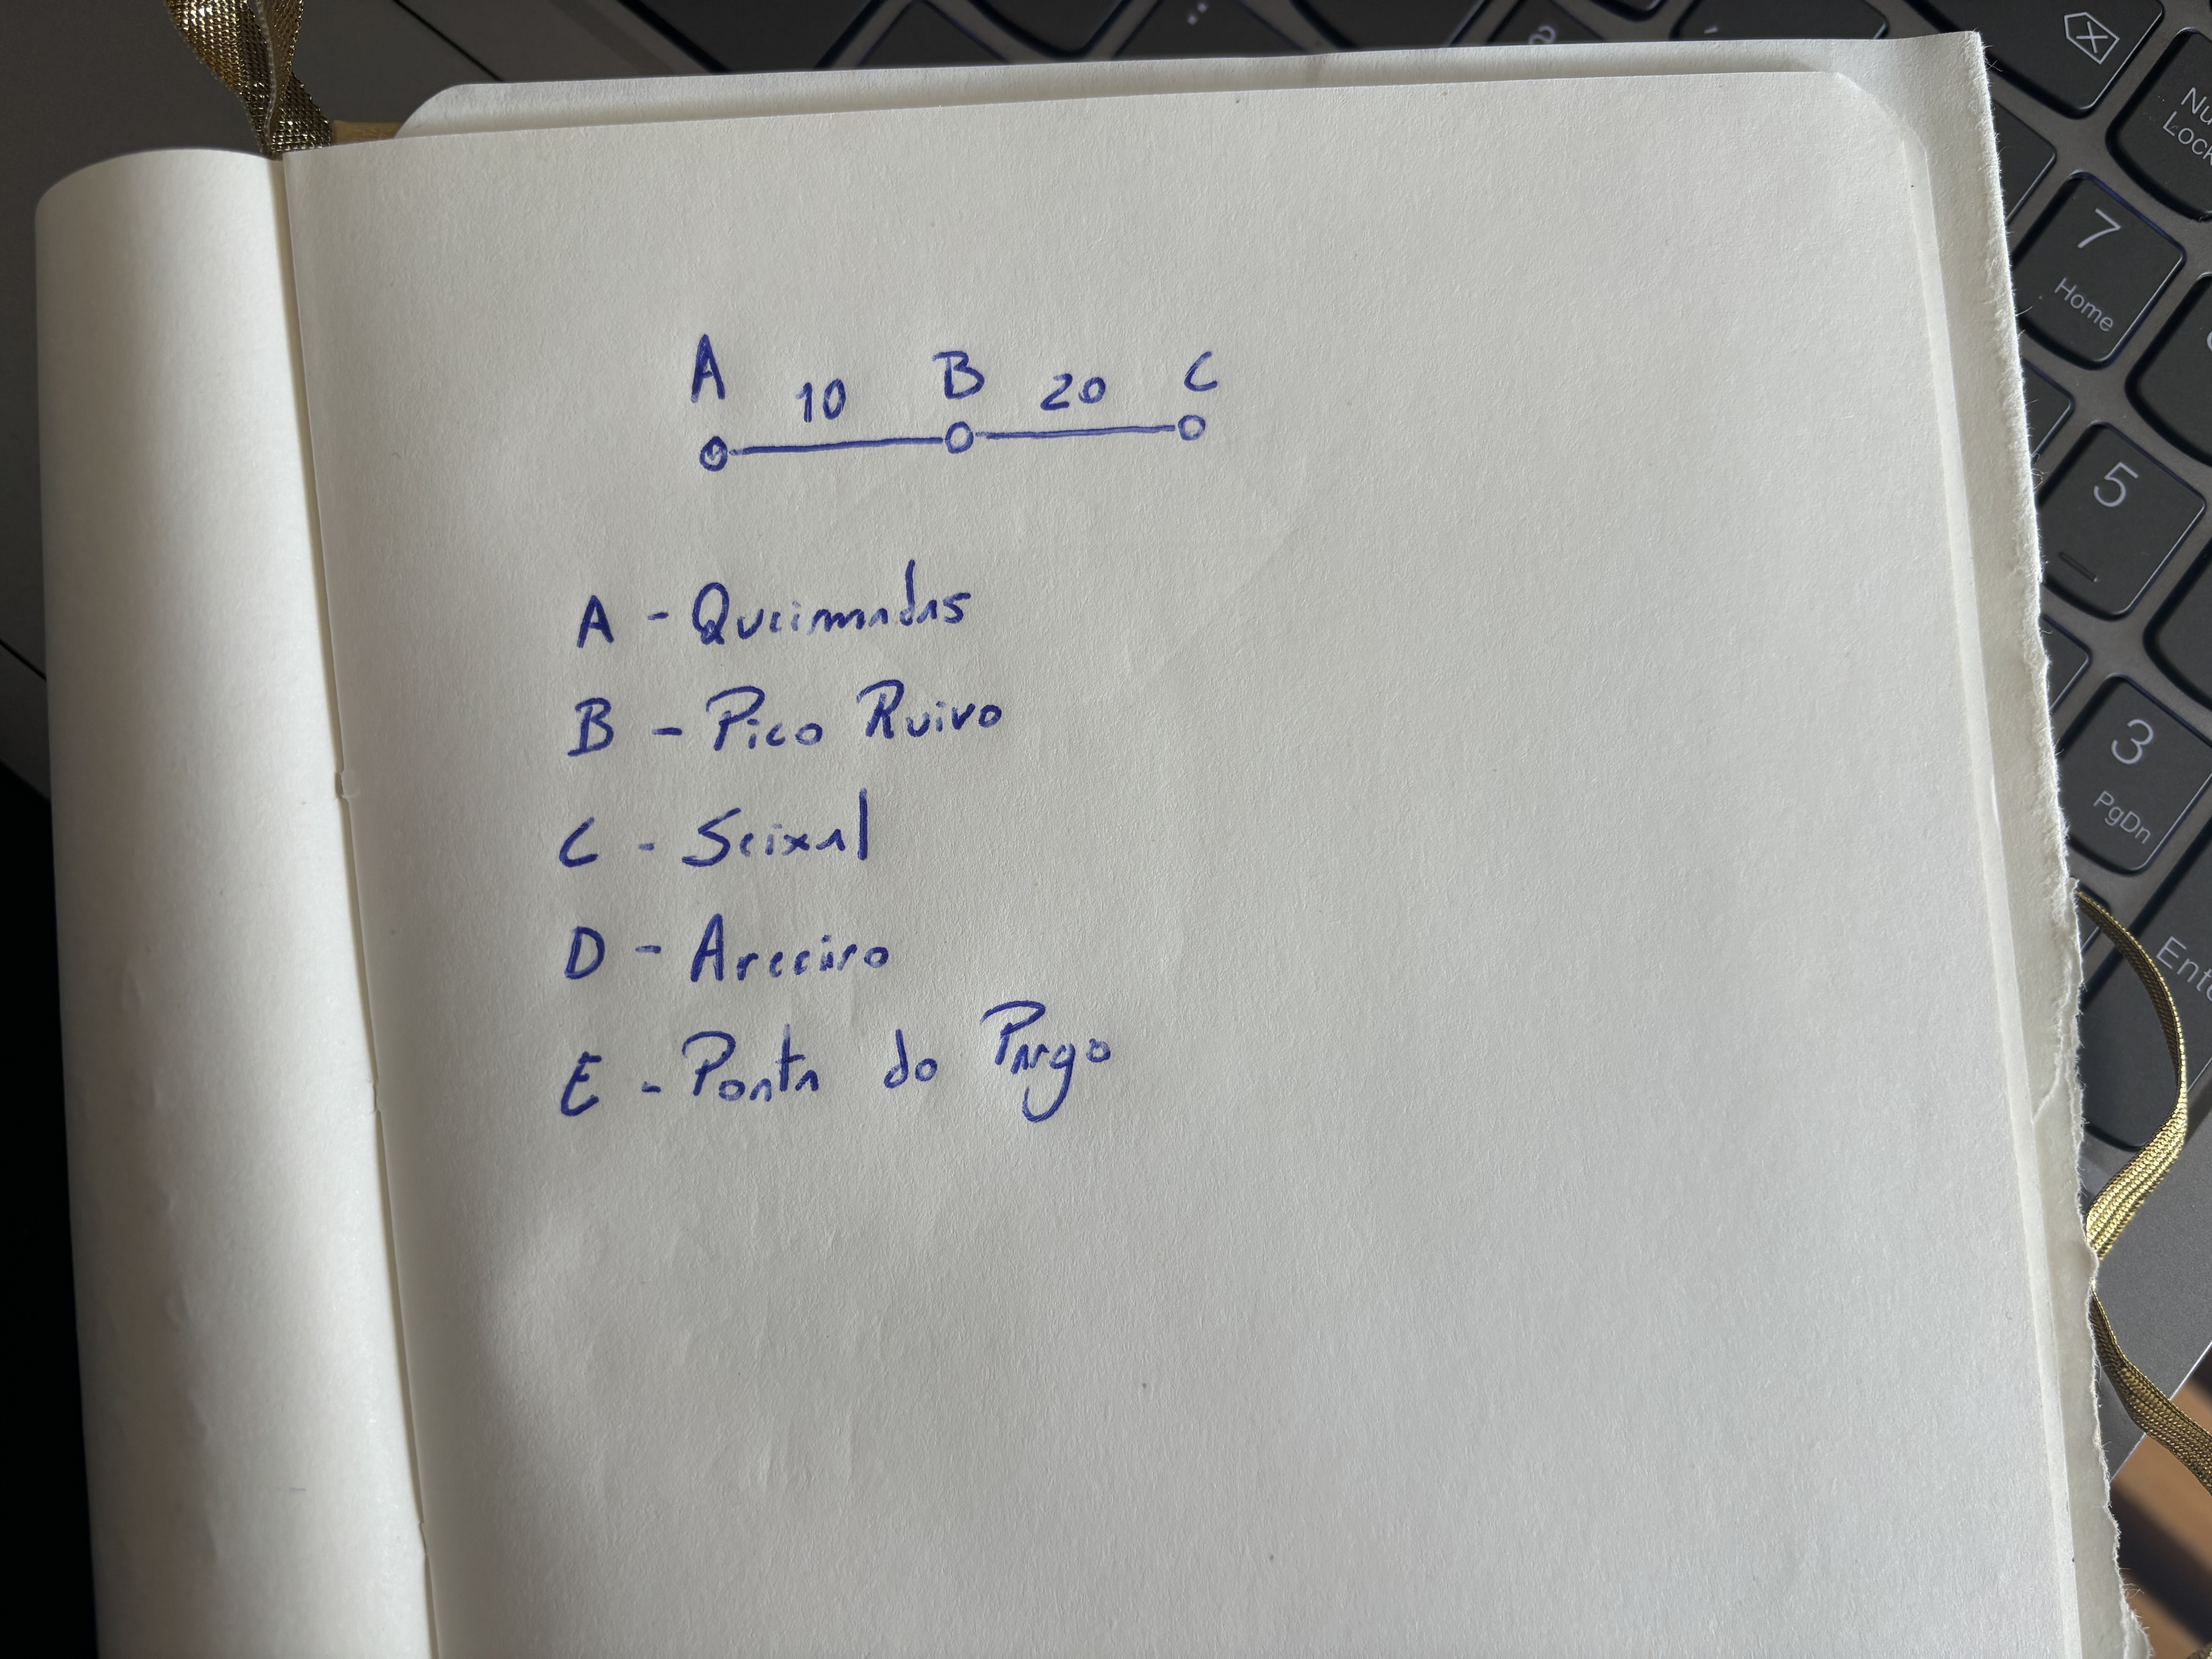 A 10 B 20 C
A - Queimadas
B - Pico Ruivo
C - Seixal
D - Areeiro
E - Ponta do Pargo
7
Home
5
3
PgDn